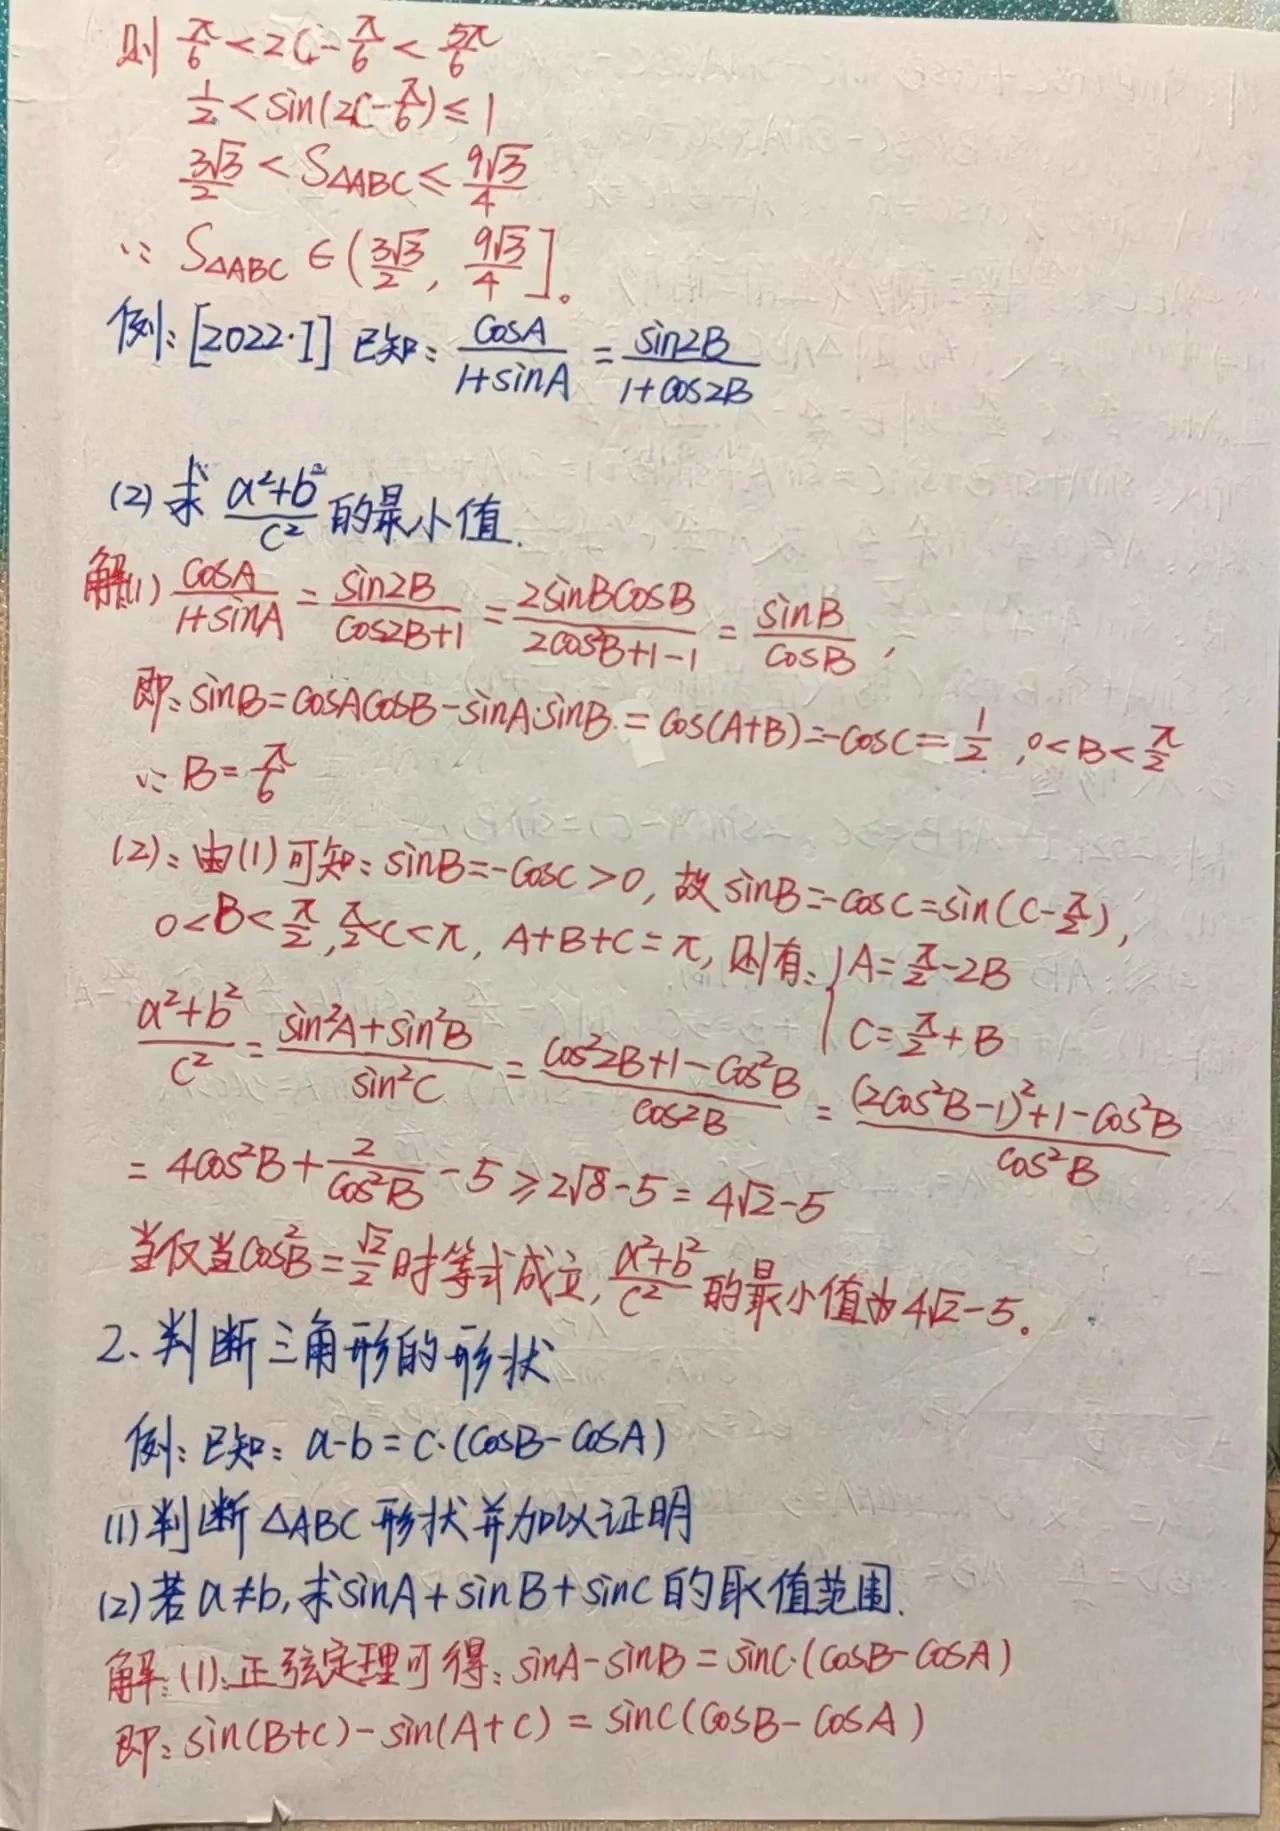 则 π/6 < 2C - π/6 < 5π/6
1/2 < sin(2C - π/6) ≤ 1
3√3/2 < S△ABC ≤ 9√3/4
∵ S△ABC ∈ (3√3/2, 9√3/4]。
例: [2022·I] 已知: cosA/(1+sinA) = sin2B/(1+cos2B)
(2) 求 (a²+b²)/c² 的最小值.
解:(1) cosA/(1+sinA) = sin2B/(cos2B+1) = 2sinBcosB/(2cos²B+1-1) = sinB/cosB,
即: sinB = cosAcosB - sinA·sinB = cos(A+B) = -cosC = 1/2, 0<B<π/2
∵ B = π/6
(2): 由(1)可知: sinB = -cosC > 0, 故 sinB = -cosC = sin(C - π/2),
0<B<π/2, π/2<C<π, A+B+C=π, 则有: { A = π/2 - 2B
C = π/2 + B
(a²+b²)/c² = (sin²A+sin²B)/sin²C = (cos²2B+1-cos²B)/cos2B = ((2cos²B-1)²+1-cos²B)/cos²B
= 4cos²B + 2/cos²B - 5 ≥ 2√8 - 5 = 4√2 - 5
当仅当cos²B = √2/2 时等式成立, (a²+b²)/c² 的最小值为 4√2 - 5。
2、判断三角形的形状
例: 已知: a-b = c·(cosB - cosA)
(1) 判断 △ABC 形状并加以证明
(2) 若 a≠b, 求 sinA + sinB + sinC 的取值范围.
解: (1): 正弦定理可得: sinA - sinB = sinC·(cosB - cosA)
即: sin(B+C) - sin(A+C) = sinC(cosB - cosA)